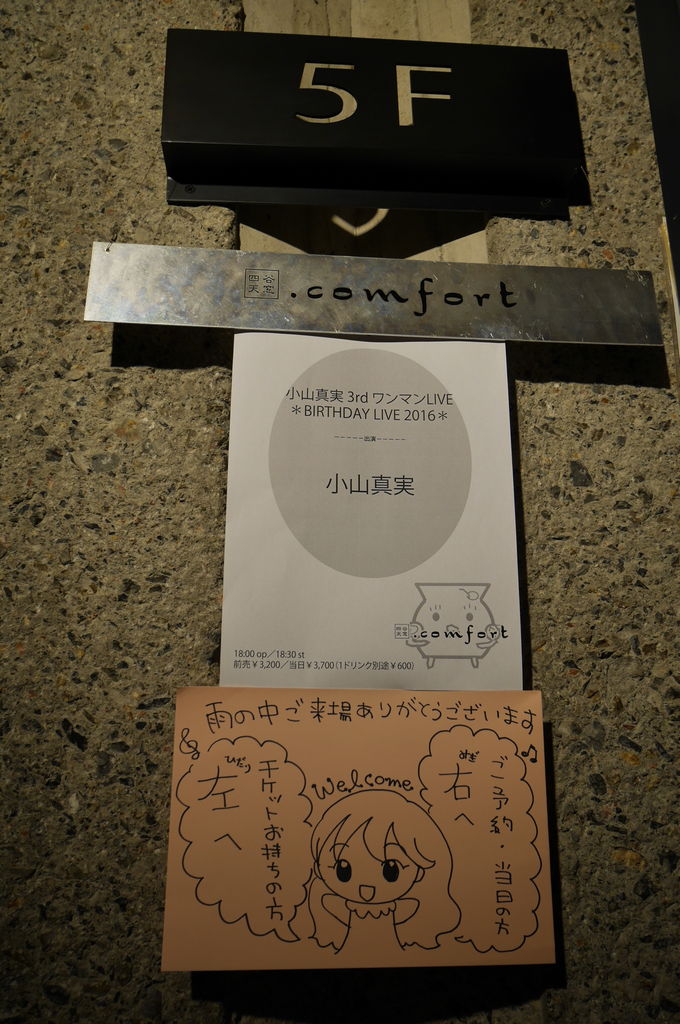 5F
四谷
天窓
.comfort
小山真実 3rd ワンマンLIVE
＊BIRTHDAY LIVE 2016＊
-----出演-----
小山真実
四谷
天窓
.comfort
18:00 op／18:30 st
前売￥3,200／当日￥3,700（1ドリンク別途￥600）
雨の中ご来場ありがとうございます
Welcome
ご予約・当日の方
右へ
みぎ
チケットお持ちの方
左へ
ひだり